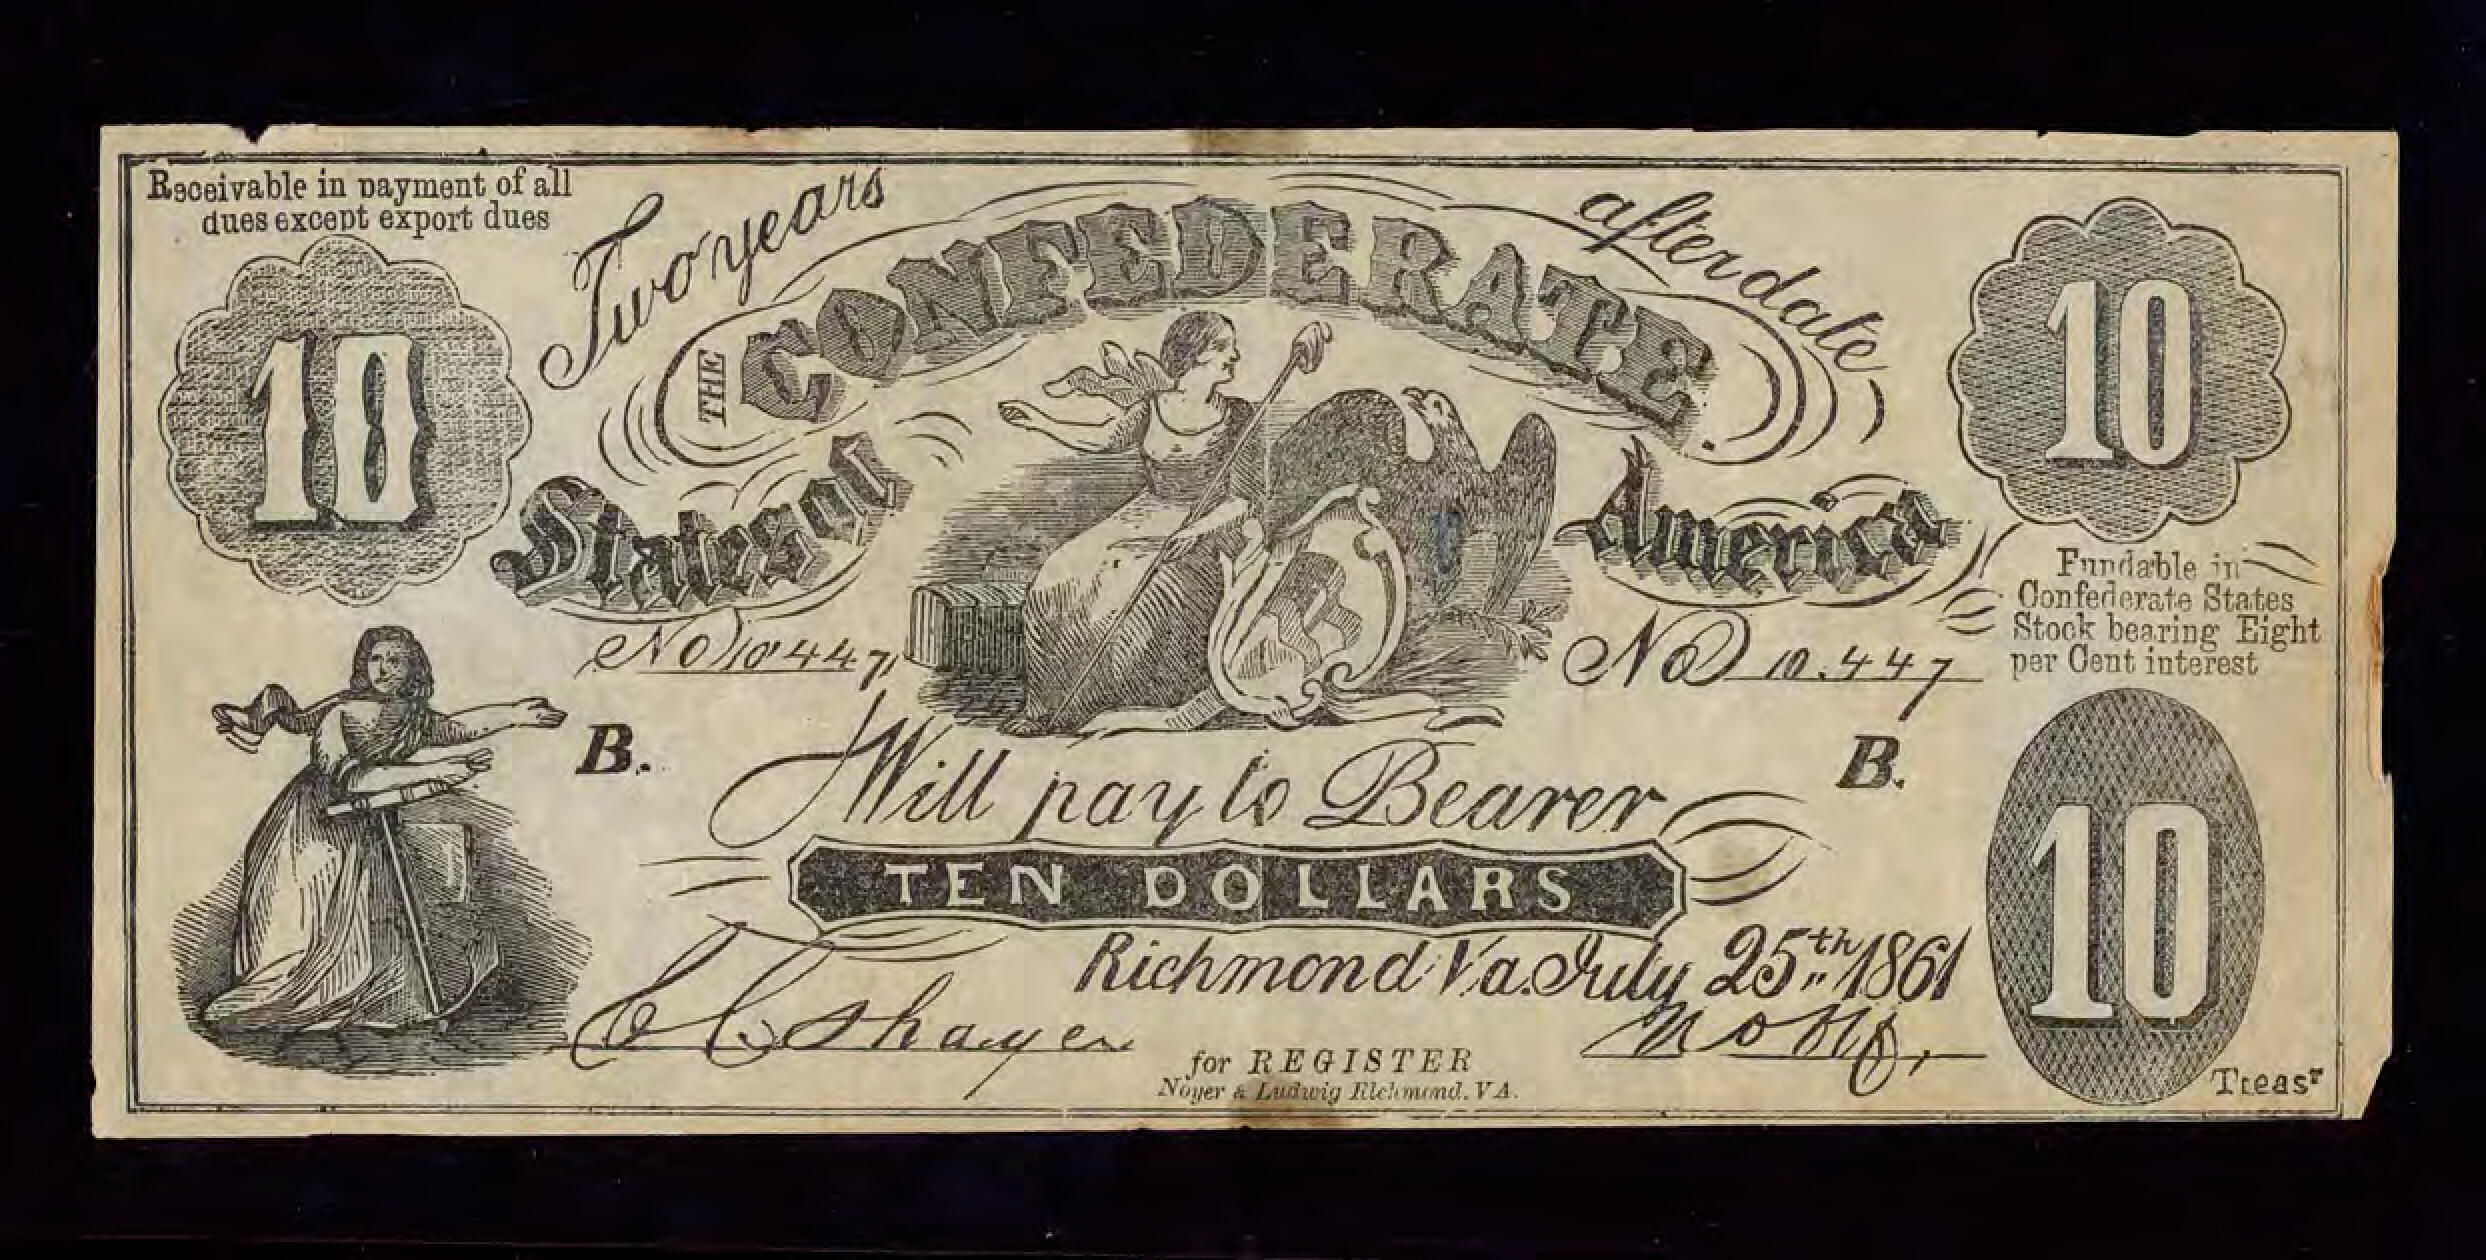 Receivable in payment of all
dues except export dues
Two years after date
THE CONFEDERATE
States of America
10
10
Fundable in
Confederate States
Stock bearing Eight
per Cent interest
No 10447
No 10.447
B.
B.
Will pay to Bearer
TEN DOLLARS
10
Richmond Va. July 25th 1861
for REGISTER
Treasr
Noyer & Ludwig Richmond. VA.